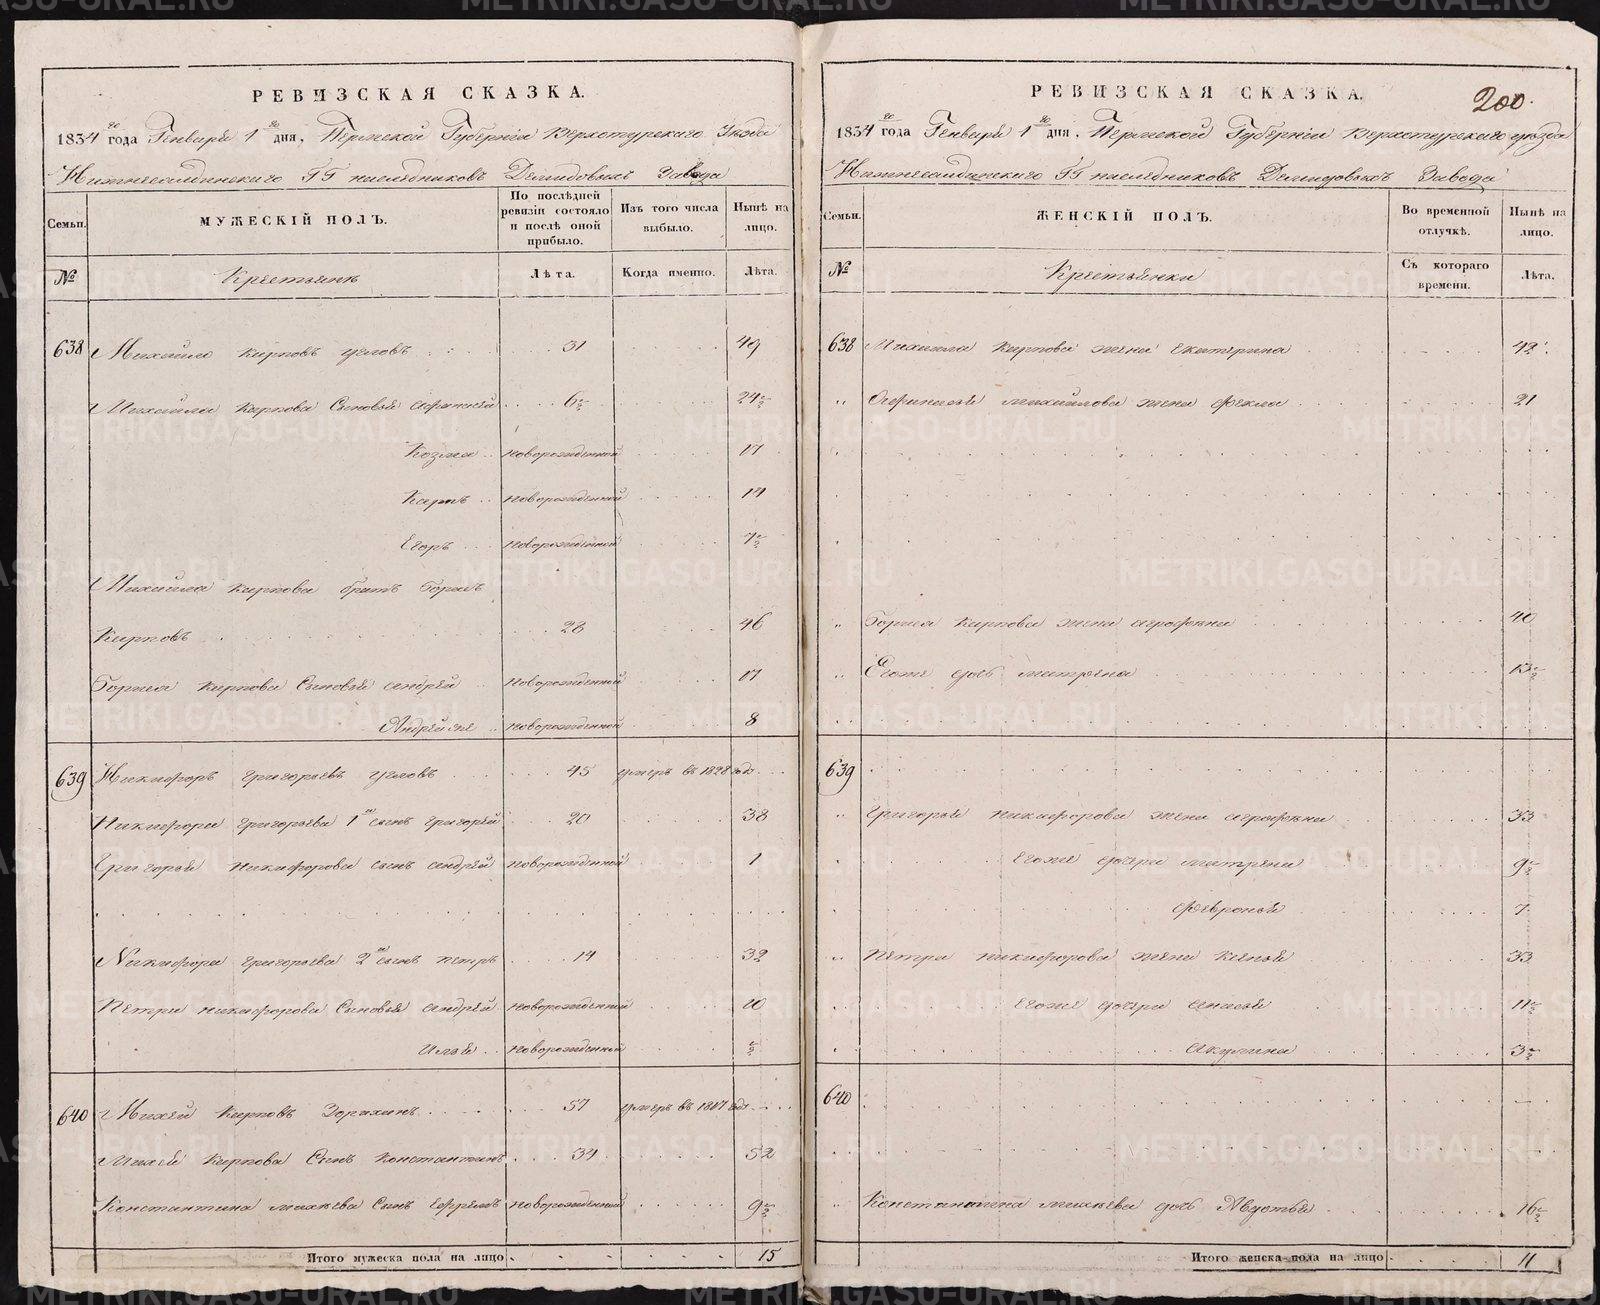 РЕВИЗСКАЯ СКАЗКА.
1834 го года Генваря 1 го дня, Пермской Губерніи Верхотурскаго Уезда
Нижнесалдинскаго ГГ наследниковъ Демидовыхъ Завода
Семьи.
МУЖЕСКІЙ ПОЛЪ.
По послѣдней ревизіи состояло и послѣ оной прибыло.
Изъ того числа выбыло.
Нынѣ на лицо.
№
Крестьянъ
Лѣта.
Когда именно.
Лѣта.
638 Михайло Карповъ Угловъ 31 49
Михайла Карпова Сыновья Афанасей 6½ 24½
Козма новорожденной 17
Карпъ новорожденной 14
Егоръ новорожденной 7½
Михайла Карпова братъ Борисъ
Карповъ 28 46
Бориса Карпова Сыновья Андрей новорожденной 17
Андрей же новорожденной 8
639 Никифоръ Григорьевъ Угловъ 45 умеръ въ 1828 годе
Никифора Григорьева 1й сынъ Григорей 20 38
Григорья Никифорова сынъ Андрей новорожденной 1
Никифора Григорьева 2й сынъ Петръ 14 32
Петра Никифорова Сыновья Андрей новорожденной 10
Илья новорожденной ½
640 Михей Карповъ Зорихинъ 57 умеръ въ 1817 годе
Михея Карпова Сынъ Константинъ 34 52
Константина Михеева Сынъ Ефремъ новорожденной 9½
Итого мужеска пола на лицо 15
РЕВИЗСКАЯ СКАЗКА.
200.
1834 го года Генваря 1 го дня, Пермской Губерніи Верхотурскаго уезда
Нижнесалдинскаго ГГ наследниковъ Демидовыхъ Завода
Семьи.
ЖЕНСКІЙ ПОЛЪ.
Во временной отлучкѣ.
Нынѣ на лицо.
№
Крестьянки
Съ котораго времени.
Лѣта.
638 Михайла Карпова жена Екатерина 42
" Афанасья Михайлова жена Фекла 21
" Бориса Карпова жена Аграфена 40
" Егоже дочь Матрена 13½
639
" Григорья Никифорова жена Аграфена 33
Егоже дочери Матрена 9½
Февронья 7
" Петра Никифорова жена Ксенья 33
Егоже дочери Анасья 11½
Акулина 3½
640
" Константина Михеева дочь Авдотья 16½
Итого женска пола на лицо 11
METRIKI.GASO-URAL.RU